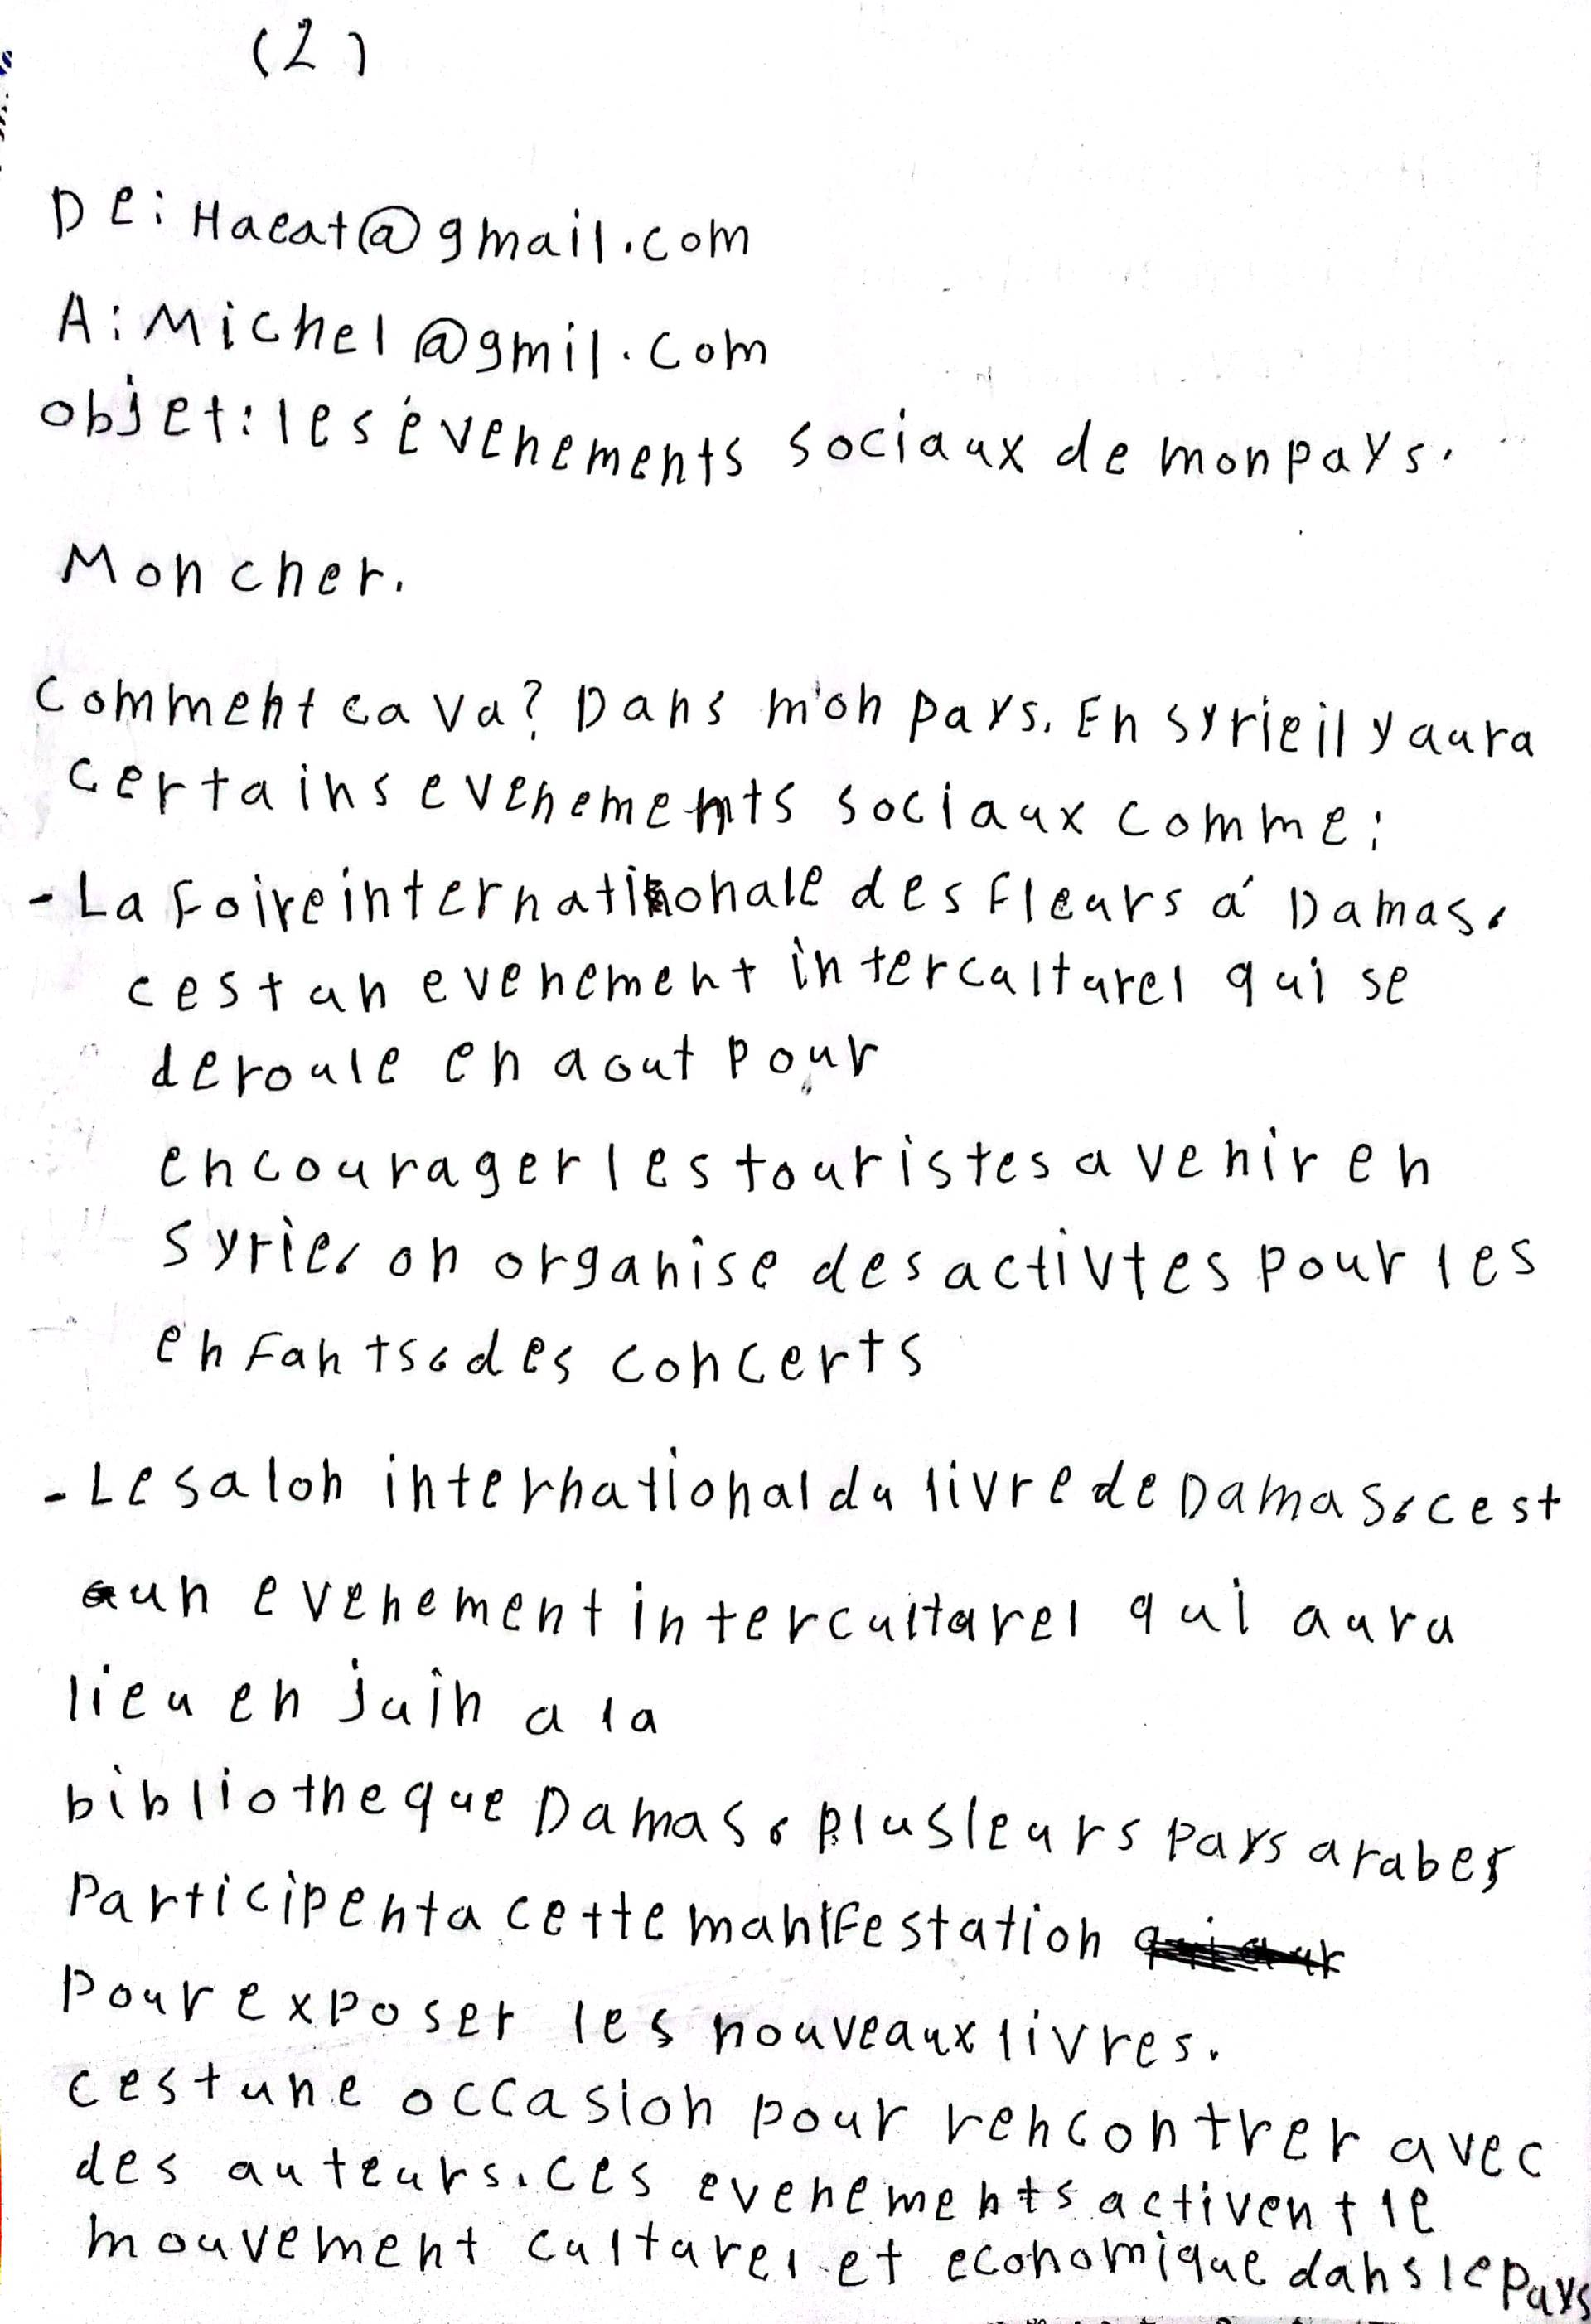 (2)
De: Haeat@gmail.com
A: Michel@gmil.com
objet: les évenements sociaux de mon pays.
Mon cher.
Comment ca va? Dans mon pays. En syrie il y aura
certains evenements sociaux comme:
- La foire internationale des fleurs á Damas.
cest un evenement interculturel qui se
deroule en aout pour
encourager les touristes a venir en
syrie, on organise des activtes pour les
enfants, des concerts
- Le salon international du livre de Damas, cest
un evenement interculturel qui aura
lieu en juin a la
bibliotheque Damas, plusieurs pays arabes
Participent a cette manifestation
pour exposer les nouveaux livres.
cest une occasion pour rencontrer avec
des auteurs. ces evenements activent le
mouvement culturel et economique dans le pays